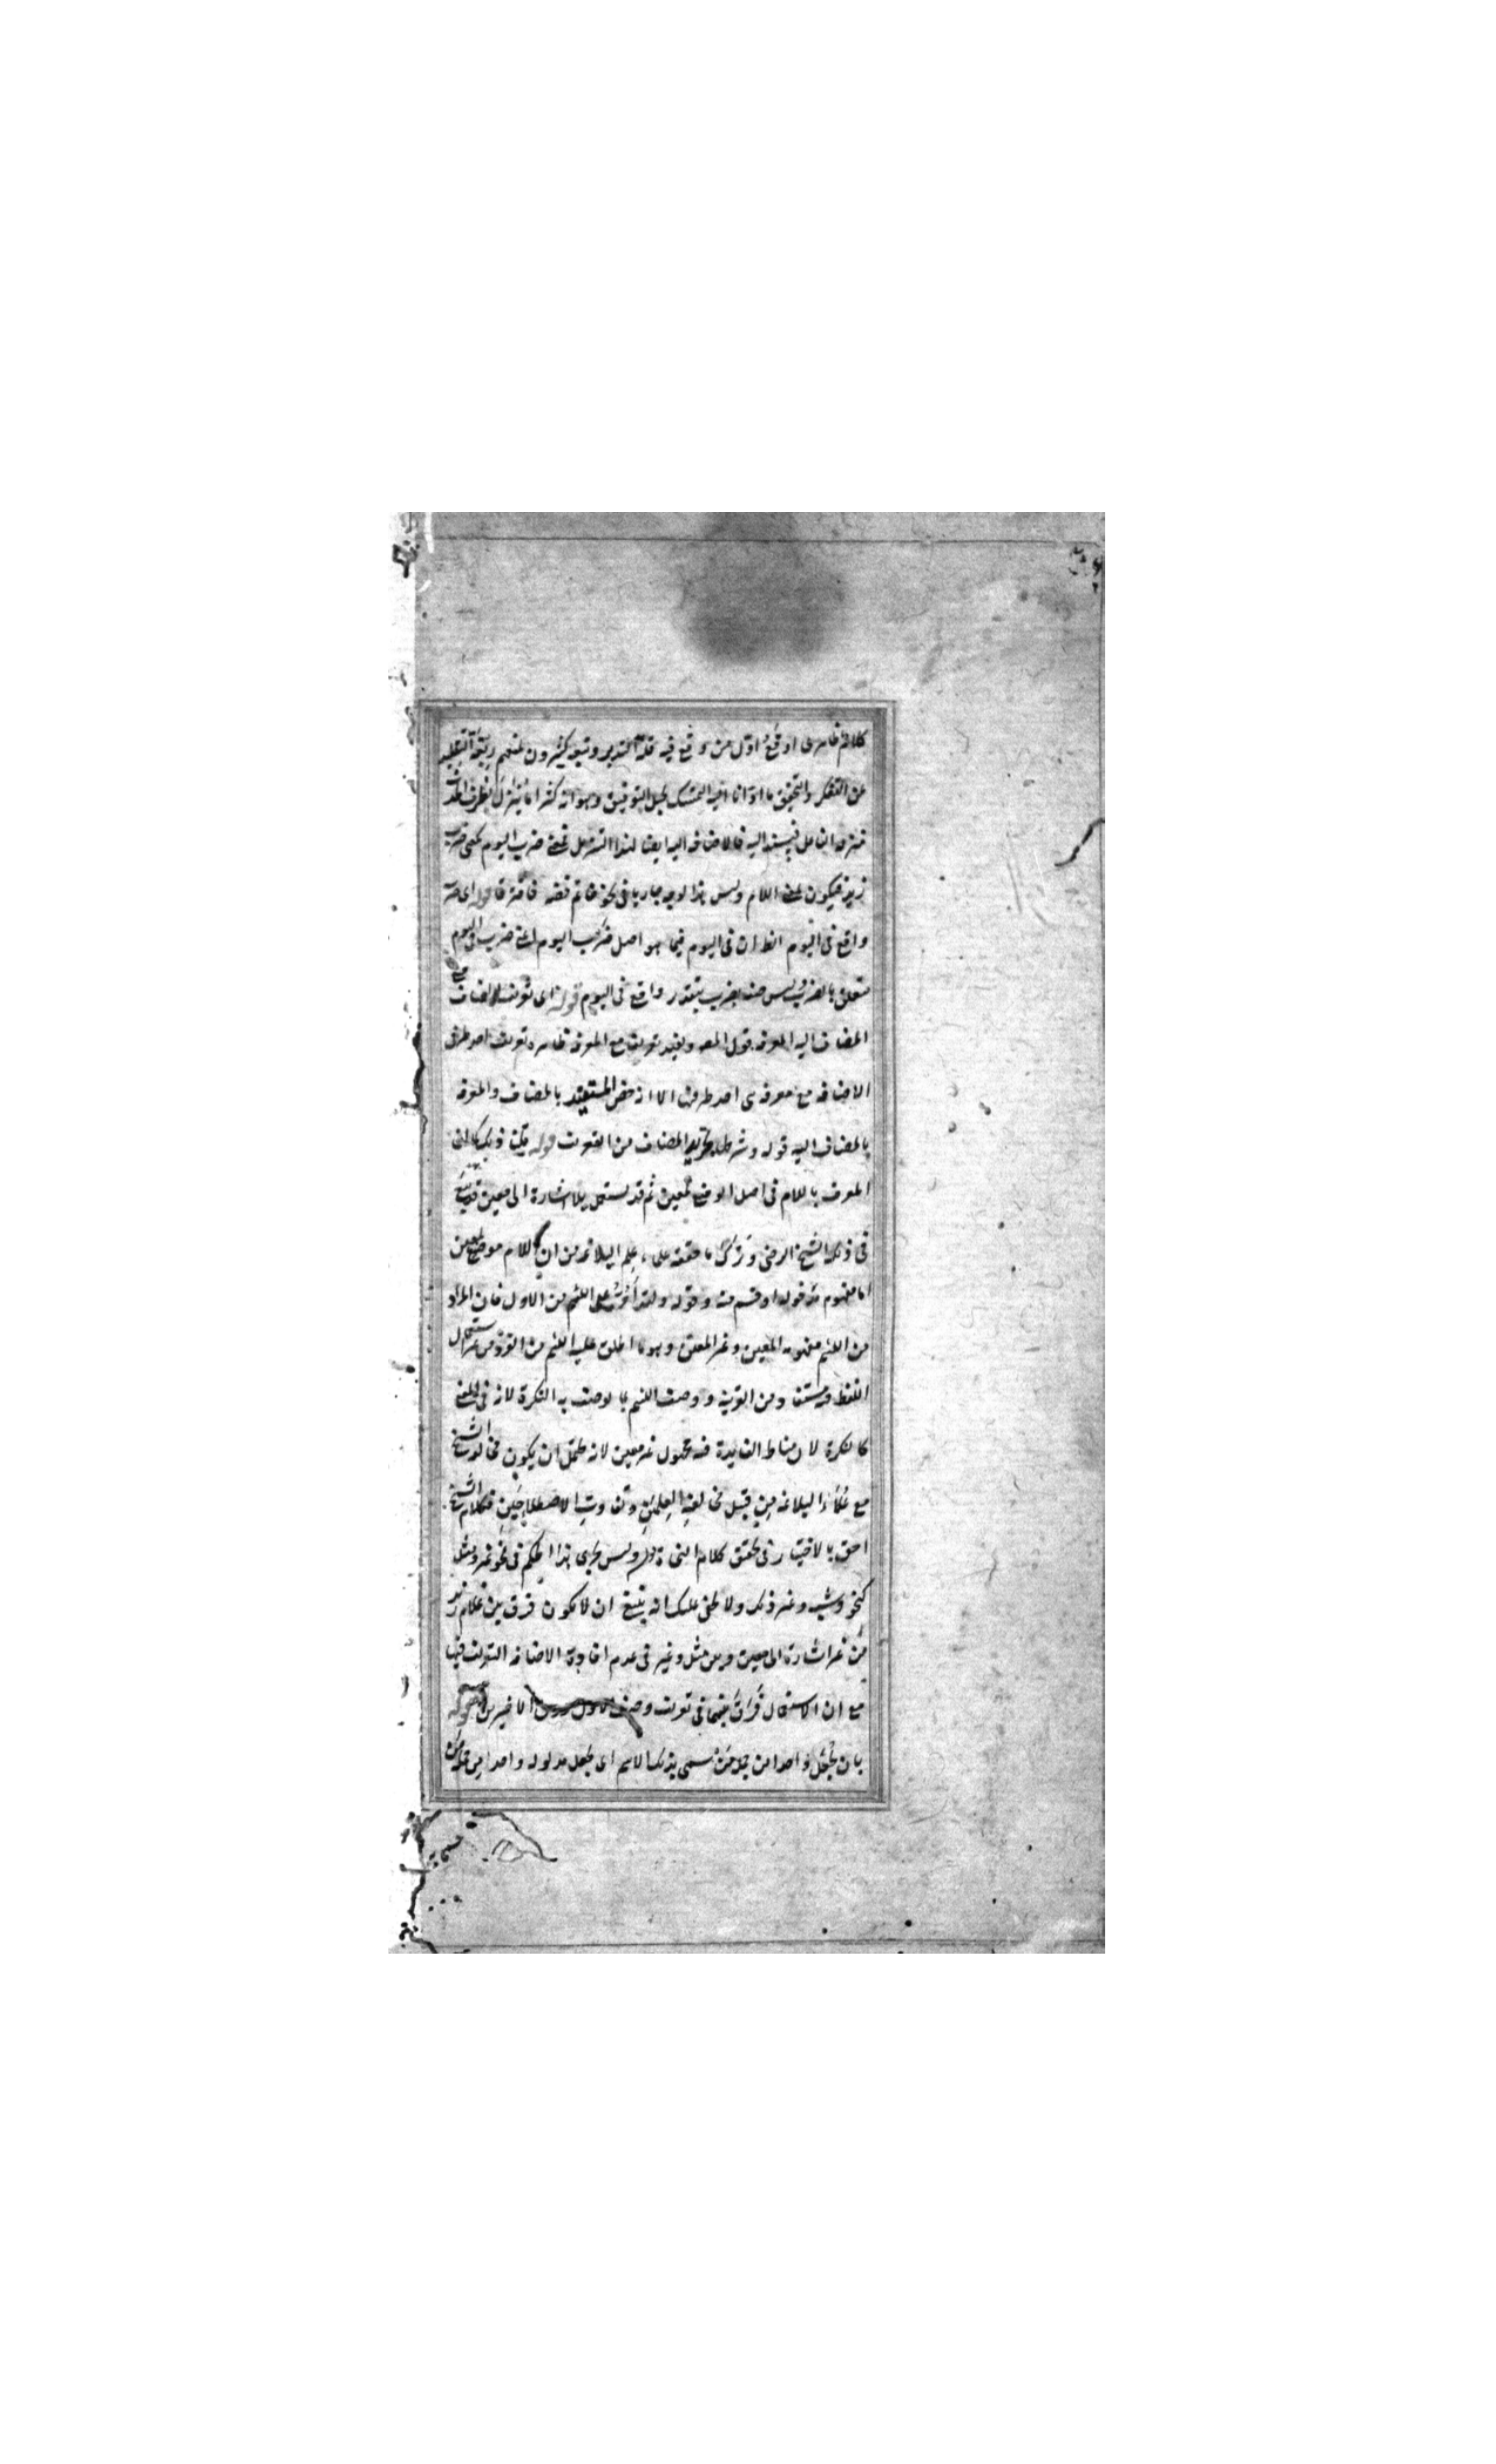 كلام اوقع اول من وقع فيه قلة التدبر وتبعه كثيرون لمنعهم ربقة التقليد
عن التفكر والتحقيق ما ادانا اليه التمسك بحبل التوفيق وهو انه كثيرا ما ينزل الظرف
منزلة فيسند اليه فالاضافة اليه ايضا لهذا التنزيل فمعنى ضرب اليوم كمعنى ضرب
زيد فيكون بمعنى اللام وليس هذا الوجه جاريا في نحو خاتم فضة قوله اى ضرب
واقع في اليوم الظ ان في اليوم فيما هو اصل ضرب اليوم اعنى ضرب في اليوم
متعلق بالضرب ليس صفة لضرب بتقدير واقع في اليوم قوله اى تعريف المضاف مع
المضاف اليه المعرفة قول المص ويفيد تعريفا مع المعرفة ظاهره تعريف احد طرفى
الاضافة مع معرفة هى احد طرفيها الا انه خص المستفيد بالمضاف والمعرفة
بالمضاف اليه قوله وشرطها تجريد المضاف من التعريف قوله قلت ذلك كما ان
المعرف باللام في اصل الوضع لمعين ثم قد يستعمل بلا اشارة الى معين
في ذلك الشيخ الرضى وترك ما حققه علماء علم البلاغة من ان اللام موضوع لمعين
اما مفهوم مدخوله او قسم منه وقوله ولقد امر على اللئيم من الاول فان المراد
من اللئيم مفهومه المعين وغير المعين وهو ما اطلق عليه اللئيم من الفرد من غير استعمال
اللفظ فيه مستفاد من القرينة ووصف اللئيم بما يوصف به النكرة لانه في المعنى
كالنكرة لان مناط الفايدة فيه مجهول غير معين لانه يحتمل ان يكون مخالفة الشيخ
مع علماء البلاغة من قبيل مخالفة العلمين وتفاوت الاصطلاحين فكلام الشيخ
احق بالاختيار في تحقيق كلام النحاة قوله وليس يجرى هذا الحكم في نحو غير ومثل
كنحو وشبه وغير ذلك ولا يخفى عليك انه ينبغى ان لا يكون فرق بين غلام زيد
من غير اشارة الى معين وبين مثل وغير في عدم افادة الاضافة التعريف فيها
مع ان الاستعمال فرق بينهما في تعريف وصف الاول دون الاخيرين قوله
بان يجعل واحدا من جملة من سمى بذلك الاسم اى يجعل مدلوله واحدا من جملة من